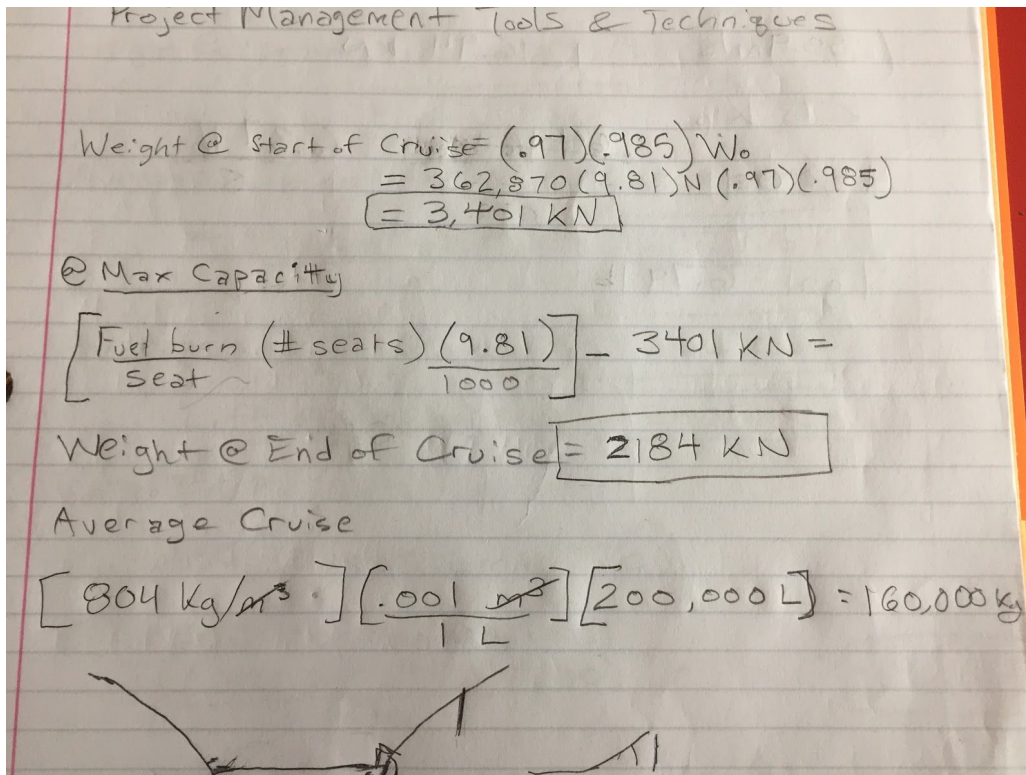 Project Management Tools & Techniques
Weight @ Start of Cruise = (.97)(.985) Wo
= 362,870 (9.81) N (.97)(.985)
= 3,401 KN
@ Max Capacity
[Fuel burn/Seat (# seats) (9.81)/1000] - 3401 KN =
Weight @ End of Cruise = 2184 KN
Average Cruise
[804 Kg/m³][.001 m³/1 L][200,000 L] = 160,000 Kg